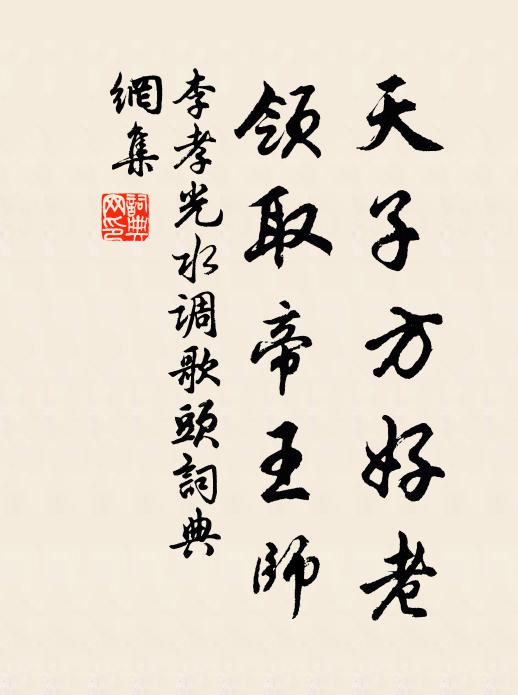 天子方好老
领取帝王師
李孝光水调歌頭詞典
網集
詞典
网印